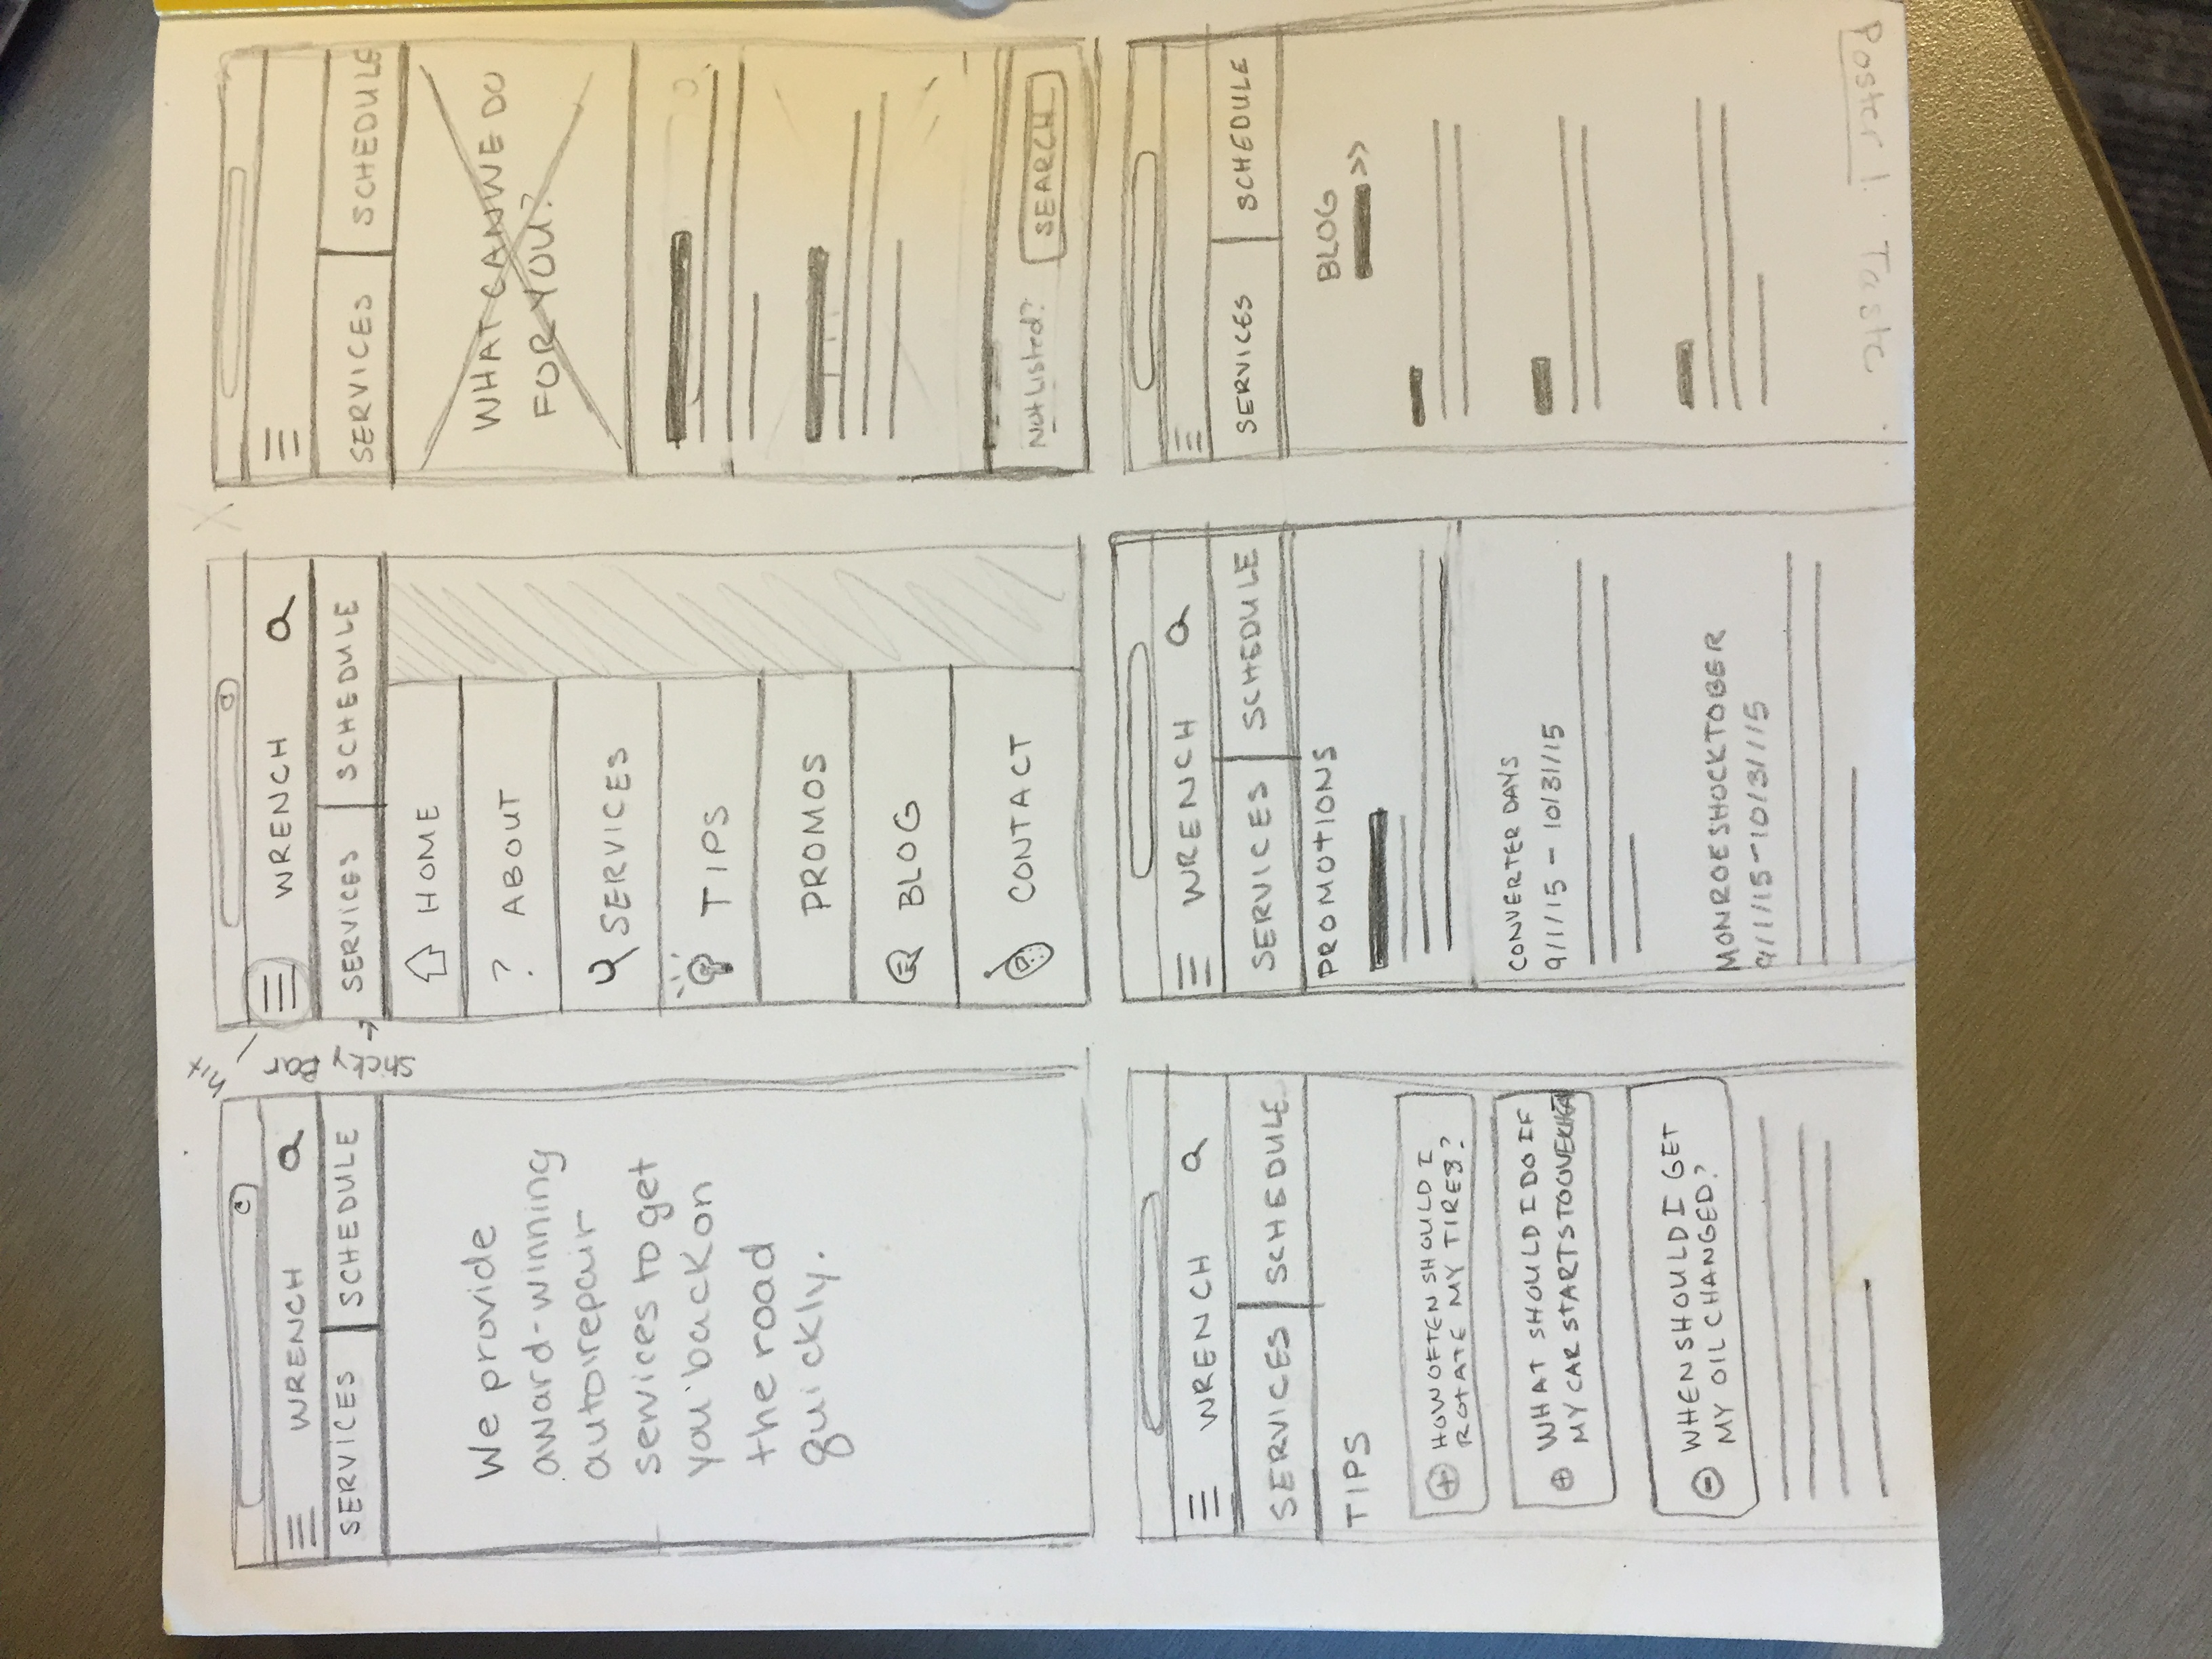 WRENCH
SERVICES
SCHEDULE
We provide
award-winning
auto repair
services to get
you back on
the road
quickly.
Sticky Bar
hit
WRENCH
SERVICES
SCHEDULE
HOME
? ABOUT
SERVICES
TIPS
PROMOS
BLOG
CONTACT
SERVICES
SCHEDULE
WHAT CAN WE DO
FOR YOU?
Not Listed?
SEARCH
WRENCH
SERVICES
SCHEDULE
TIPS
HOW OFTEN SHOULD I
ROTATE MY TIRES?
WHAT SHOULD I DO IF
MY CAR STARTS TO OVERHEAT
WHEN SHOULD I GET
MY OIL CHANGED?
WRENCH
SERVICES
SCHEDULE
PROMOTIONS
CONVERTER DAYS
9/1/15 - 10/31/15
MONROE SHOCKTOBER
9/1/15 - 10/31/15
SERVICES
SCHEDULE
BLOG
>>
Poster 1: Taste